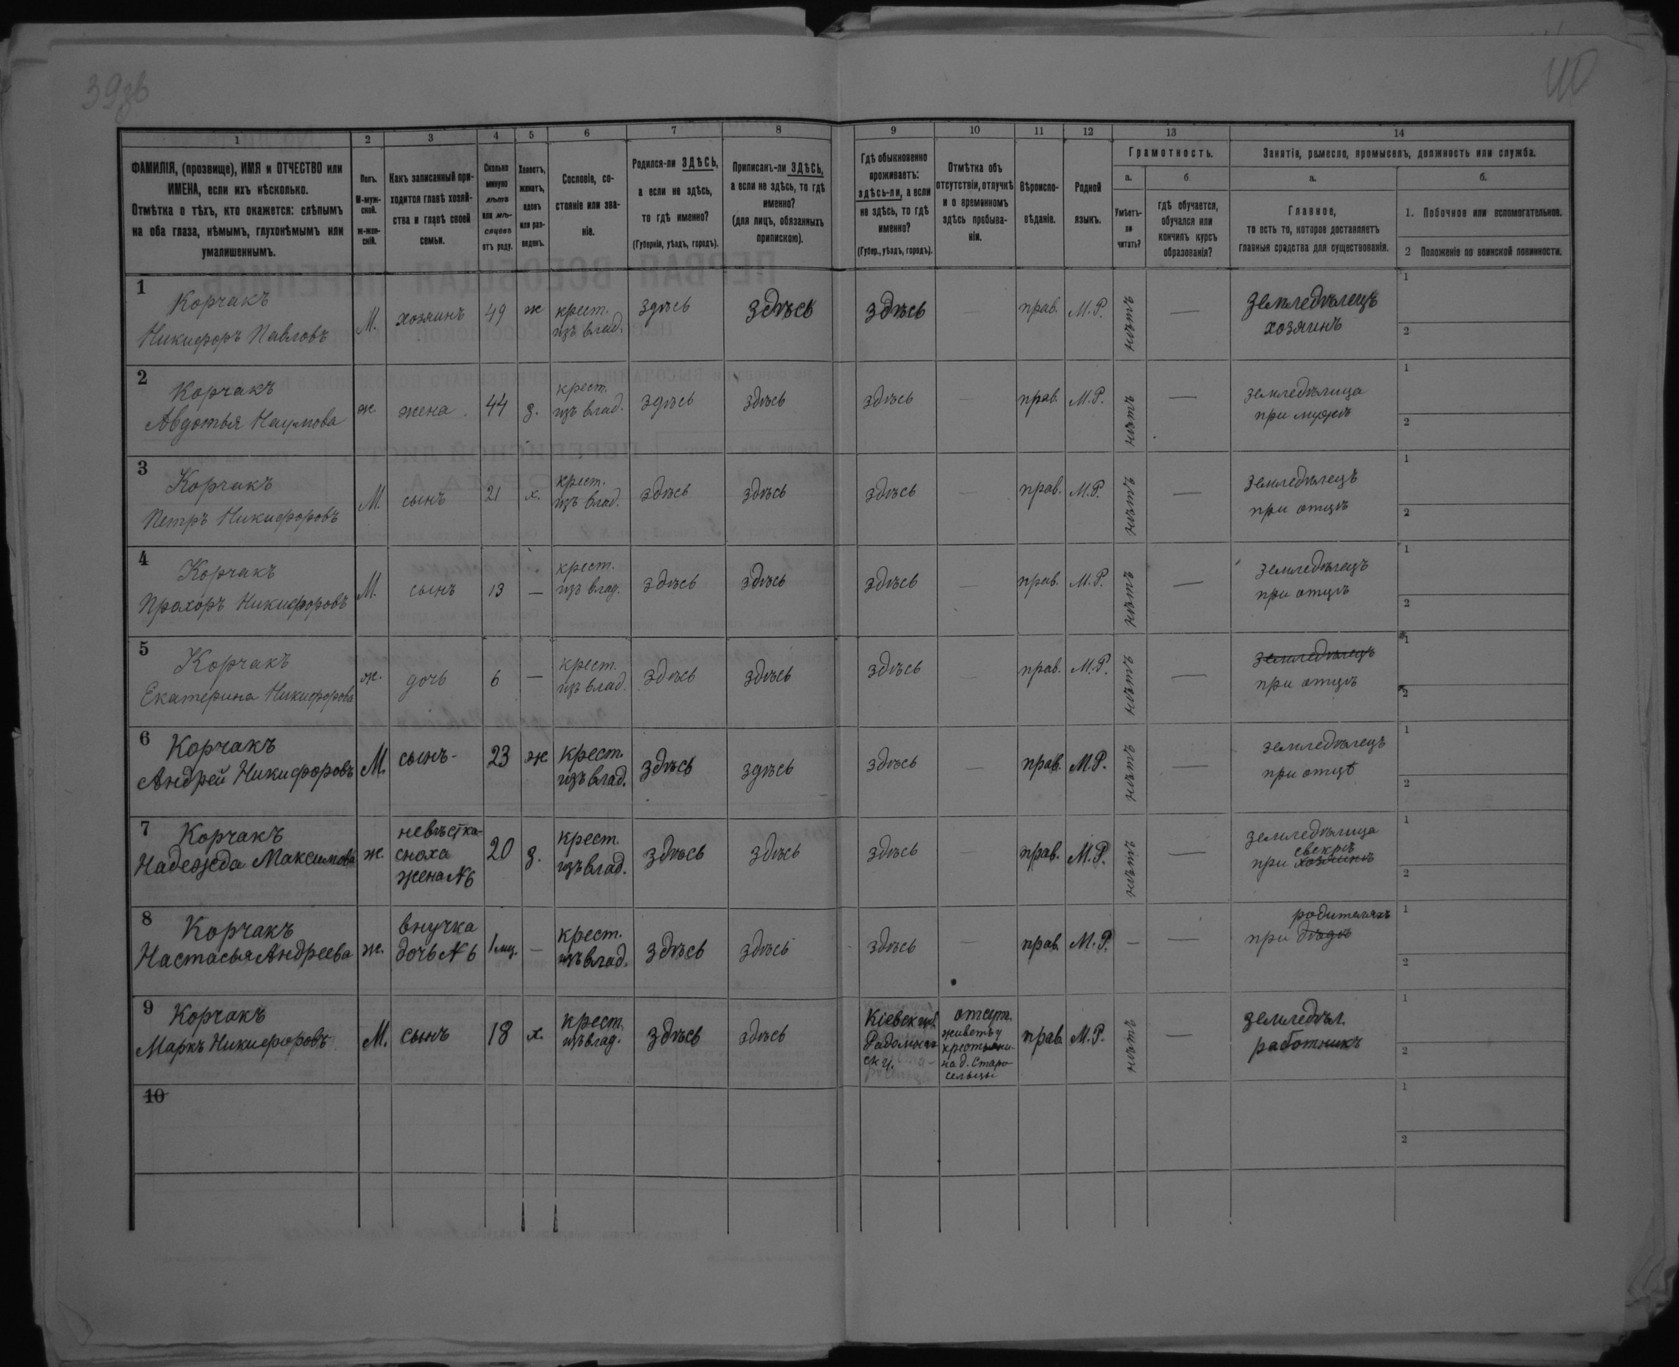 39зв
40
1 2 3 4 5 6 7 8 9 10 11 12 13 14
ФАМИЛІЯ, (прозвище), ИМЯ и ОТЧЕСТВО или
ИМЕНА, если ихъ нѣсколько.
Отмѣтка о тѣхъ, кто окажется: слѣпымъ
на оба глаза, нѣмымъ, глухонѣмымъ или
умалишеннымъ.
Полъ.
М-муж-
ской.
ж-жен-
скій.
Какъ записанный при-
ходится главѣ хозяй-
ства и главѣ своей
семьи.
Сколько
минуло
лѣтъ
или мѣ-
сяцевъ
отъ роду.
Холостъ,
женатъ,
вдовъ
или раз-
веденъ.
Сословіе, со-
стояніе или зва-
ніе.
Родился-ли ЗДѢСЬ,
а если не здѣсь,
то гдѣ именно?
(Губернія, уѣздъ, городъ).
Приписанъ-ли ЗДѢСЬ,
а если не здѣсь, то гдѣ
именно?
(для лицъ, обязанныхъ
припискою).
Гдѣ обыкновенно
проживаетъ:
здѣсь-ли, а если
не здѣсь, то гдѣ
именно?
(Губер., уѣздъ, городъ).
Отмѣтка объ
отсутствіи, отлучкѣ
и о временномъ
здѣсь пребыва-
ніи.
Вѣроиспо-
вѣданіе.
Родной
языкъ.
Грамотность.
а.
Умѣетъ-
ли
читать?
б.
гдѣ обучается,
обучался или
кончилъ курсъ
образованія?
Занятіе, ремесло, промыселъ, должность или служба.
а.
Главное,
то есть то, которое доставляетъ
главныя средства для существованія.
б.
1. Побочное или вспомогательное.
2 Положеніе по воинской повинности.
1
Корчакъ
Никифоръ Павловъ
М.
хозяинъ
49
ж
крест.
изъ влад.
здѣсь
здѣсь
здѣсь
—
прав.
М.Р.
нѣтъ
—
Земледѣлецъ
хозяинъ
1
2
2
Корчакъ
Авдотья Наумова
ж.
жена
44
з.
крест.
изъ влад.
здѣсь
здѣсь
здѣсь
—
прав.
М.Р.
нѣтъ
—
земледѣлица
при мужѣ
1
2
3
Корчакъ
Петръ Никифоровъ
М.
сынъ
21
х.
крест.
изъ влад.
здѣсь
здѣсь
здѣсь
—
прав.
М.Р.
нѣтъ
—
земледѣлецъ
при отцѣ
1
2
4
Корчакъ
Прохоръ Никифоровъ
М.
сынъ
13
—
крест.
изъ влад.
здѣсь
здѣсь
здѣсь
—
прав.
М.Р.
нѣтъ
—
земледѣлецъ
при отцѣ
1
2
5
Корчакъ
Екатерина Никифорова
ж.
дочь
6
—
крест.
изъ влад.
здѣсь
здѣсь
здѣсь
прав.
М.Р.
нѣтъ
—
земледѣлецъ
при отцѣ
1
2
6
Корчакъ
Андрей Никифоровъ
М.
сынъ
23
ж
крест.
изъ влад.
здѣсь
здѣсь
здѣсь
—
прав.
М.Р.
нѣтъ
—
земледѣлецъ
при отцѣ
1
2
7
Корчакъ
Надежда Максимова
ж.
невѣстка-
сноха
жена №6
20
з.
крест.
изъ влад.
здѣсь
здѣсь
здѣсь
прав.
М.Р.
нѣтъ
—
земледѣлица
свекрѣ
при хозяинѣ
1
2
8
Корчакъ
Настасья Андреева
ж.
внучка
дочь №6
1 мц.
—
крест.
изъ влад.
здѣсь
здѣсь
здѣсь
—
прав.
М.Р.
—
—
родителяхъ
при дѣдѣ
1
2
9
Корчакъ
Маркъ Никифоровъ
М.
сынъ
18
х.
крест.
изъ влад.
здѣсь
здѣсь
Кіевск губ.
Радомысл
ск у.
отсут.
живетъ у
крестьяни-
на д. Старо-
сельцы
прав.
М.Р.
нѣтъ
—
земледѣл.
работникъ
1
2
10
1
2